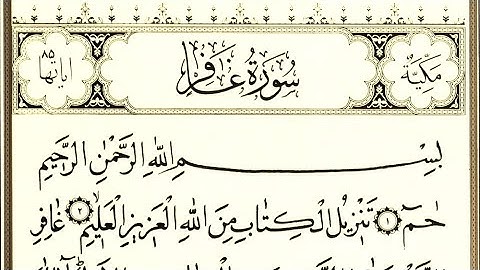 مكية سورة غافر اياتها ٨٥
بسم الله الرحمن الرحيم
حم ١ تنزيل الكتاب من الله العزيز العليم ٢ غافر